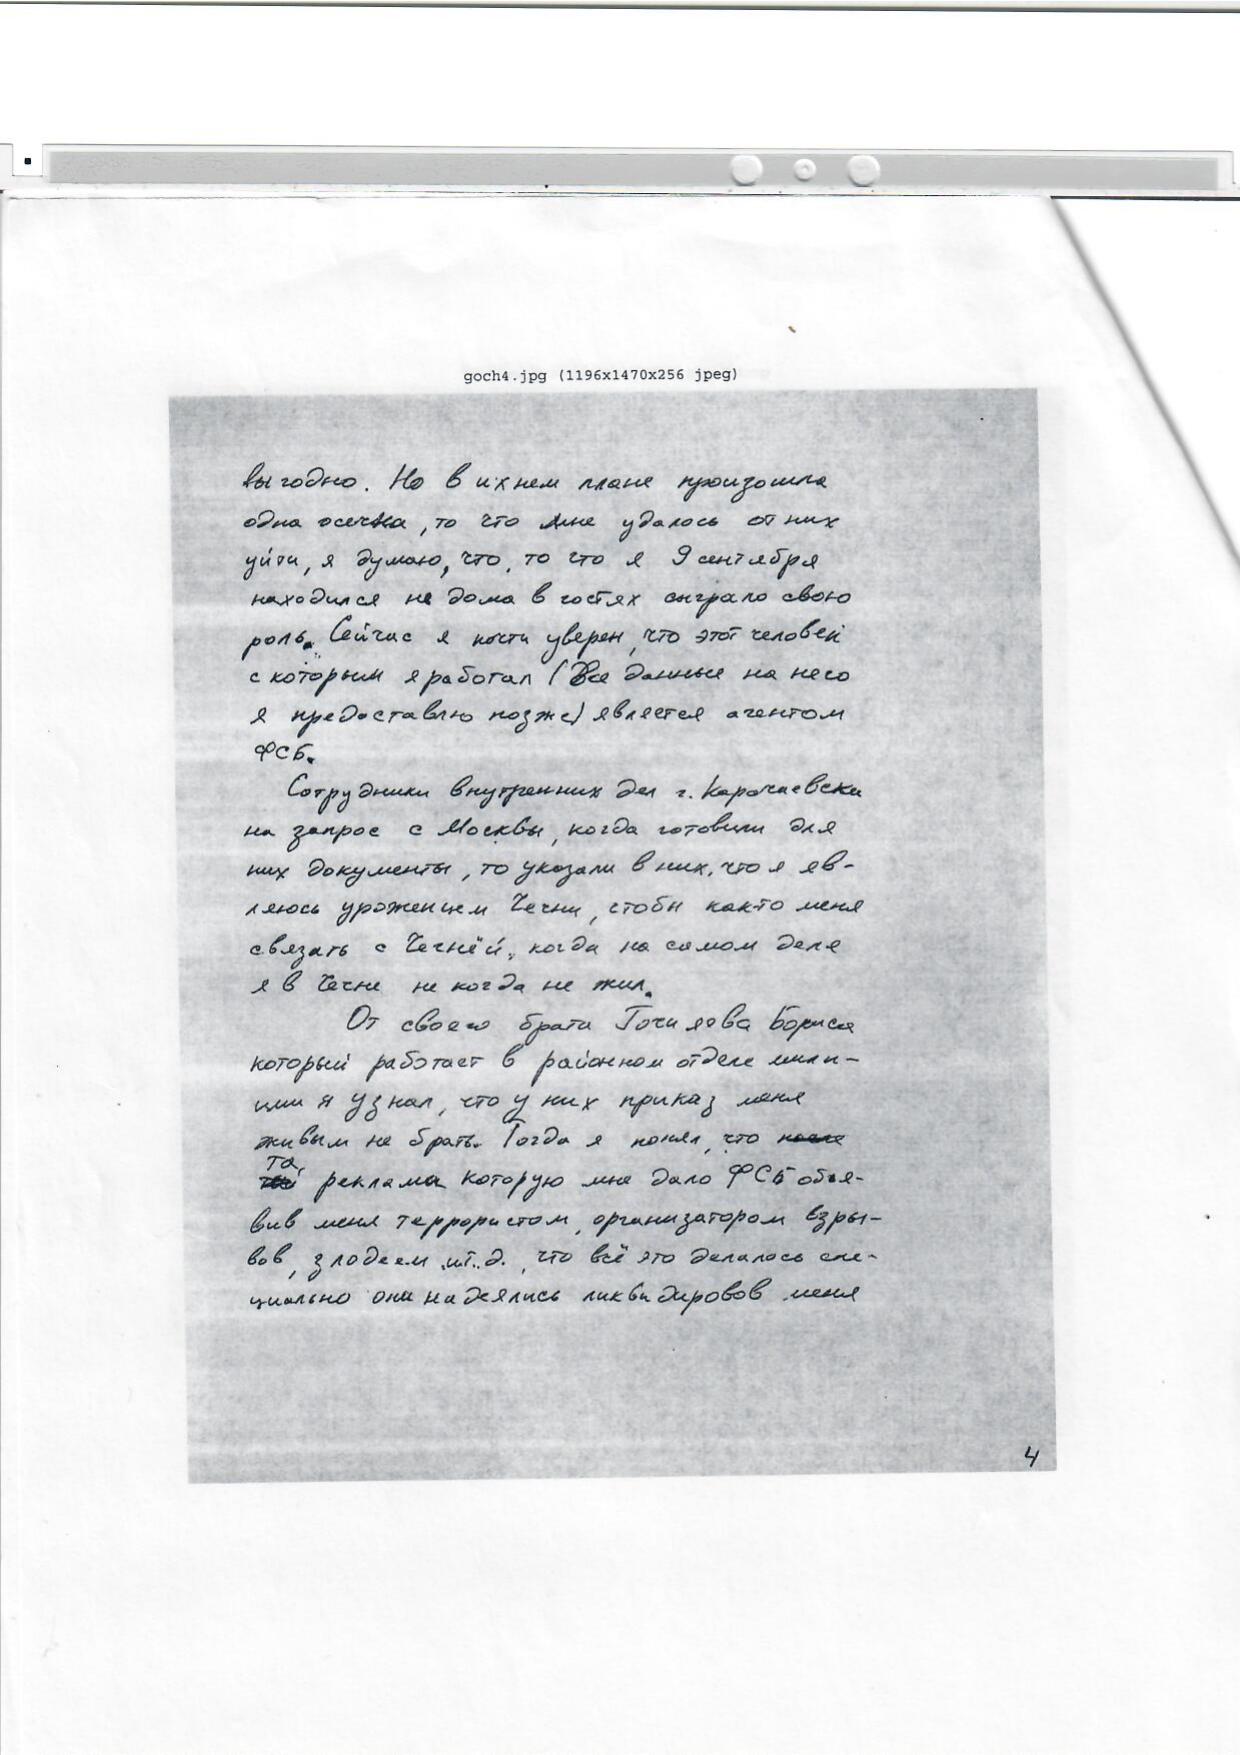 goch4.jpg (1196x1470x256 jpeg)
выгодно. Но в ихнем плане произошла
одна осечка, то что мне удалось от них
уйти, я думаю, что, то что я 9 сентября
находился не дома в гостях сыграло свою
роль. Сейчас я почти уверен, что этот человек
с которым я работал (Все данные на него
я предоставлю позже) является агентом
ФСБ.
Сотрудники внутренних дел г. Карачаевска
на запрос с Москвы, когда готовили для
них документы, то указали в них, что я яв-
ляюсь уроженцем Чечни, стобы както меня
связать с Чечнёй, когда на самом деле
я в Чечне не когда не жил.
От своего брата Гочияева Бориса
который работает в районном отделе мили-
ции я узнал, что у них приказ меня
живым не брать. Тогда я понял, что после
та
реклама которую мне дало ФСБ объя-
вив меня террористом, организатором взры-
вов, злодеем и.т.д., что всё это делалось спе-
циально они надеялись ликвидировов меня
4